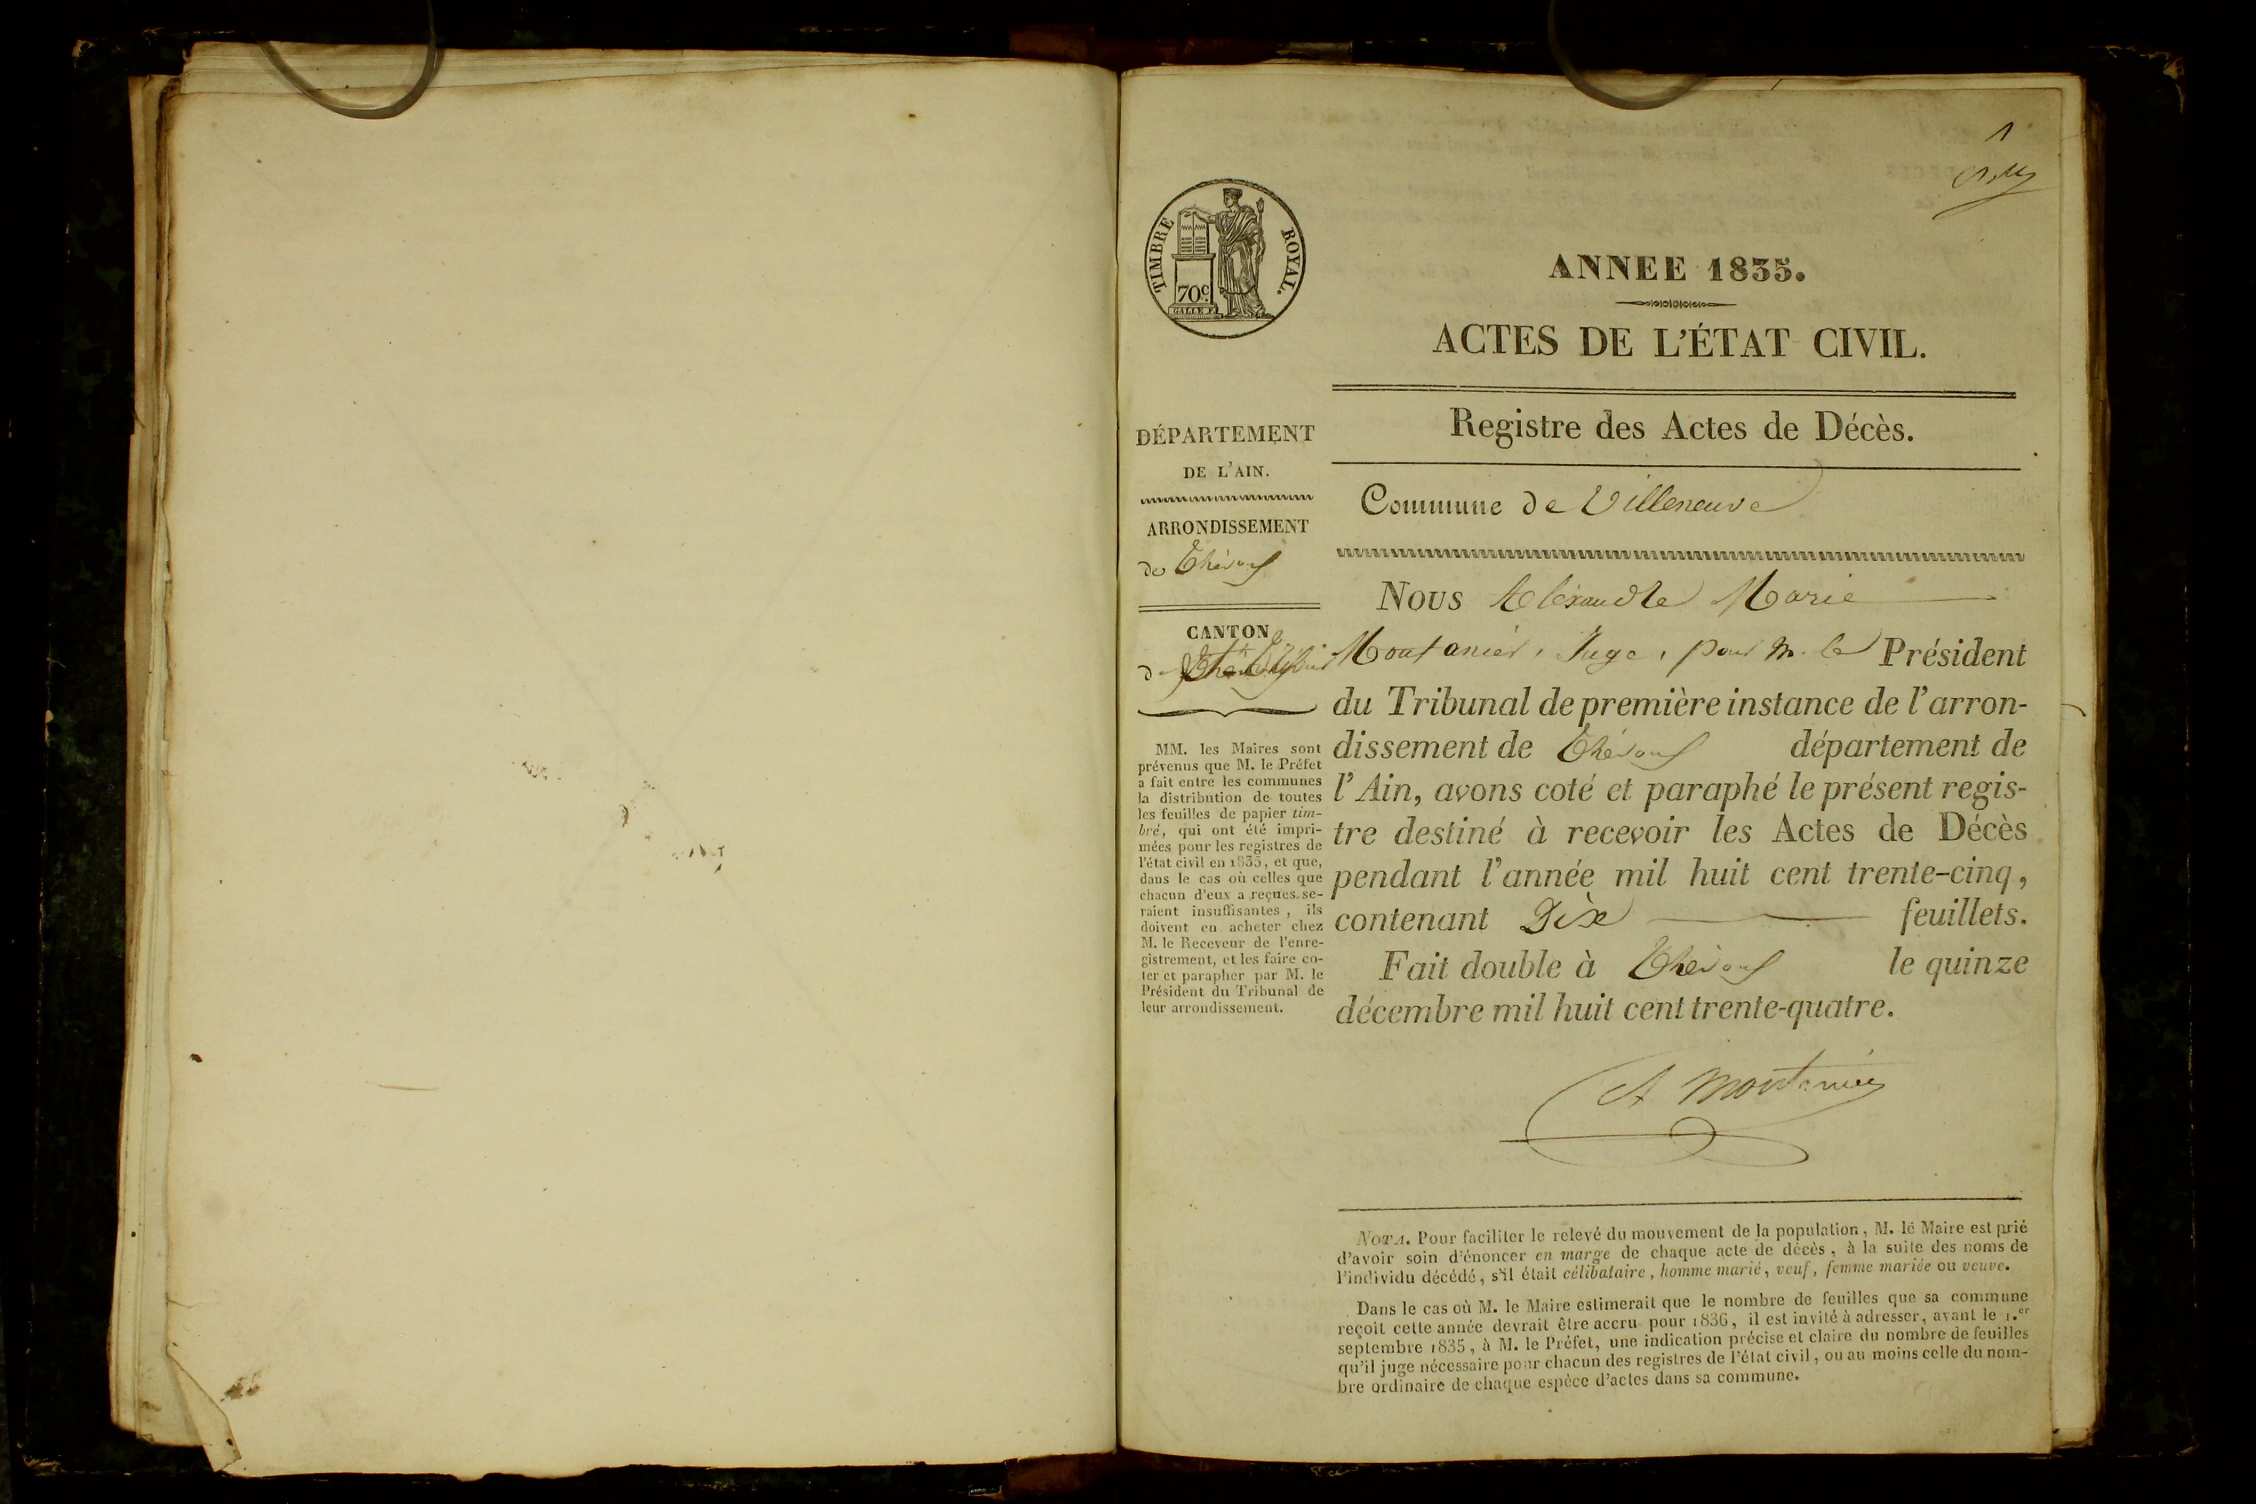 1
TIMBRE ROYAL.
70c
GALLE F.
ANNEE 1835.
ACTES DE L'ÉTAT CIVIL.
Registre des Actes de Décès.
Commune de Villeneuve
DÉPARTEMENT
DE L'AIN.
ARRONDISSEMENT
de Thévoux
CANTON
de
MM. les Maires sont
prévenus que M. le Préfet
a fait entre les communes
la distribution de toutes
les feuilles de papier tim-
bré, qui ont été impri-
mées pour les registres de
l'état civil en 1835, et que,
dans le cas où celles que
chacun d'eux a reçues se-
raient insuffisantes, ils
doivent en acheter chez
M. le Receveur de l'enre-
gistrement, et les faire co-
ter et parapher par M. le
Président du Tribunal de
leur arrondissement.
Nous Alexandre Marie
Montanier, Juge, pour M. le Président
du Tribunal de première instance de l'arron-
dissement de Thévoux département de
l'Ain, avons coté et paraphé le présent regis-
tre destiné à recevoir les Actes de Décès
pendant l'année mil huit cent trente-cinq,
contenant Dix feuillets.
Fait double à Thévoux le quinze
décembre mil huit cent trente-quatre.
A Montanier
NOTA. Pour faciliter le relevé du mouvement de la population, M. le Maire est prié
d'avoir soin d'énoncer en marge de chaque acte de décès, à la suite des noms de
l'individu décédé, s'il était célibataire, homme marié, veuf, femme mariée ou veuve.
Dans le cas où M. le Maire estimerait que le nombre de feuilles que sa commune
reçoit cette année devrait être accru pour 1836, il est invité à adresser, avant le 1.er
septembre 1835, à M. le Préfet, une indication précise et claire du nombre de feuilles
qu'il juge nécessaire pour chacun des registres de l'état civil, ou au moins celle du nom-
bre ordinaire de chaque espèce d'actes dans sa commune.